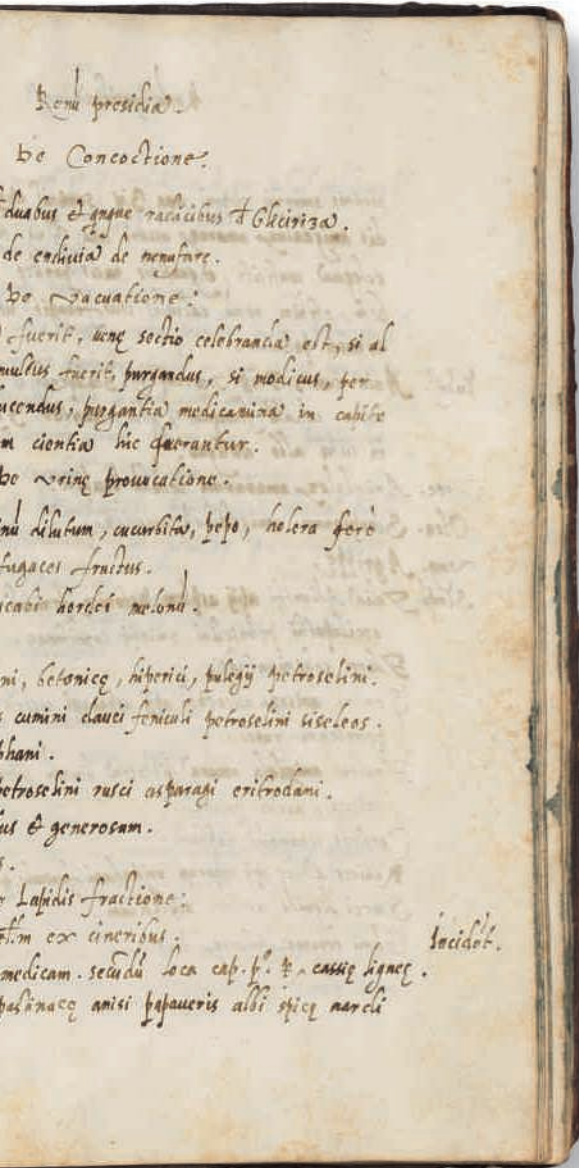 Renū presidia.
De Concoctione.
duabus et quqͣue radicibus Gliciriza.
de endiuia de nenufare.
De vacuatione:
fuerit, uenę sectio celebranda est, si al
multus fuerit, purgandus, si modicus, per
ucendus, purgantia medicamina in capite
m cientia hic querantur.
De vrinę prouocatione.
inū dilutum, cucurbita, pepo, holera ferè
fugaces fructus.
icabi hordei melonū.
ni, betonicę, hiperici, pulegij petroselini.
s cumini dauci feniculi petroselini siseleos.
phani.
petroselini rusci asparagi eritrodani.
us & generosum.
s.
Lapidis fractione:
ex cineribus.
Incidēt.
medicam. secūdū loca cap. pº. cassię ligneę.
pastinacę anisi papaueris albi spicę nardi